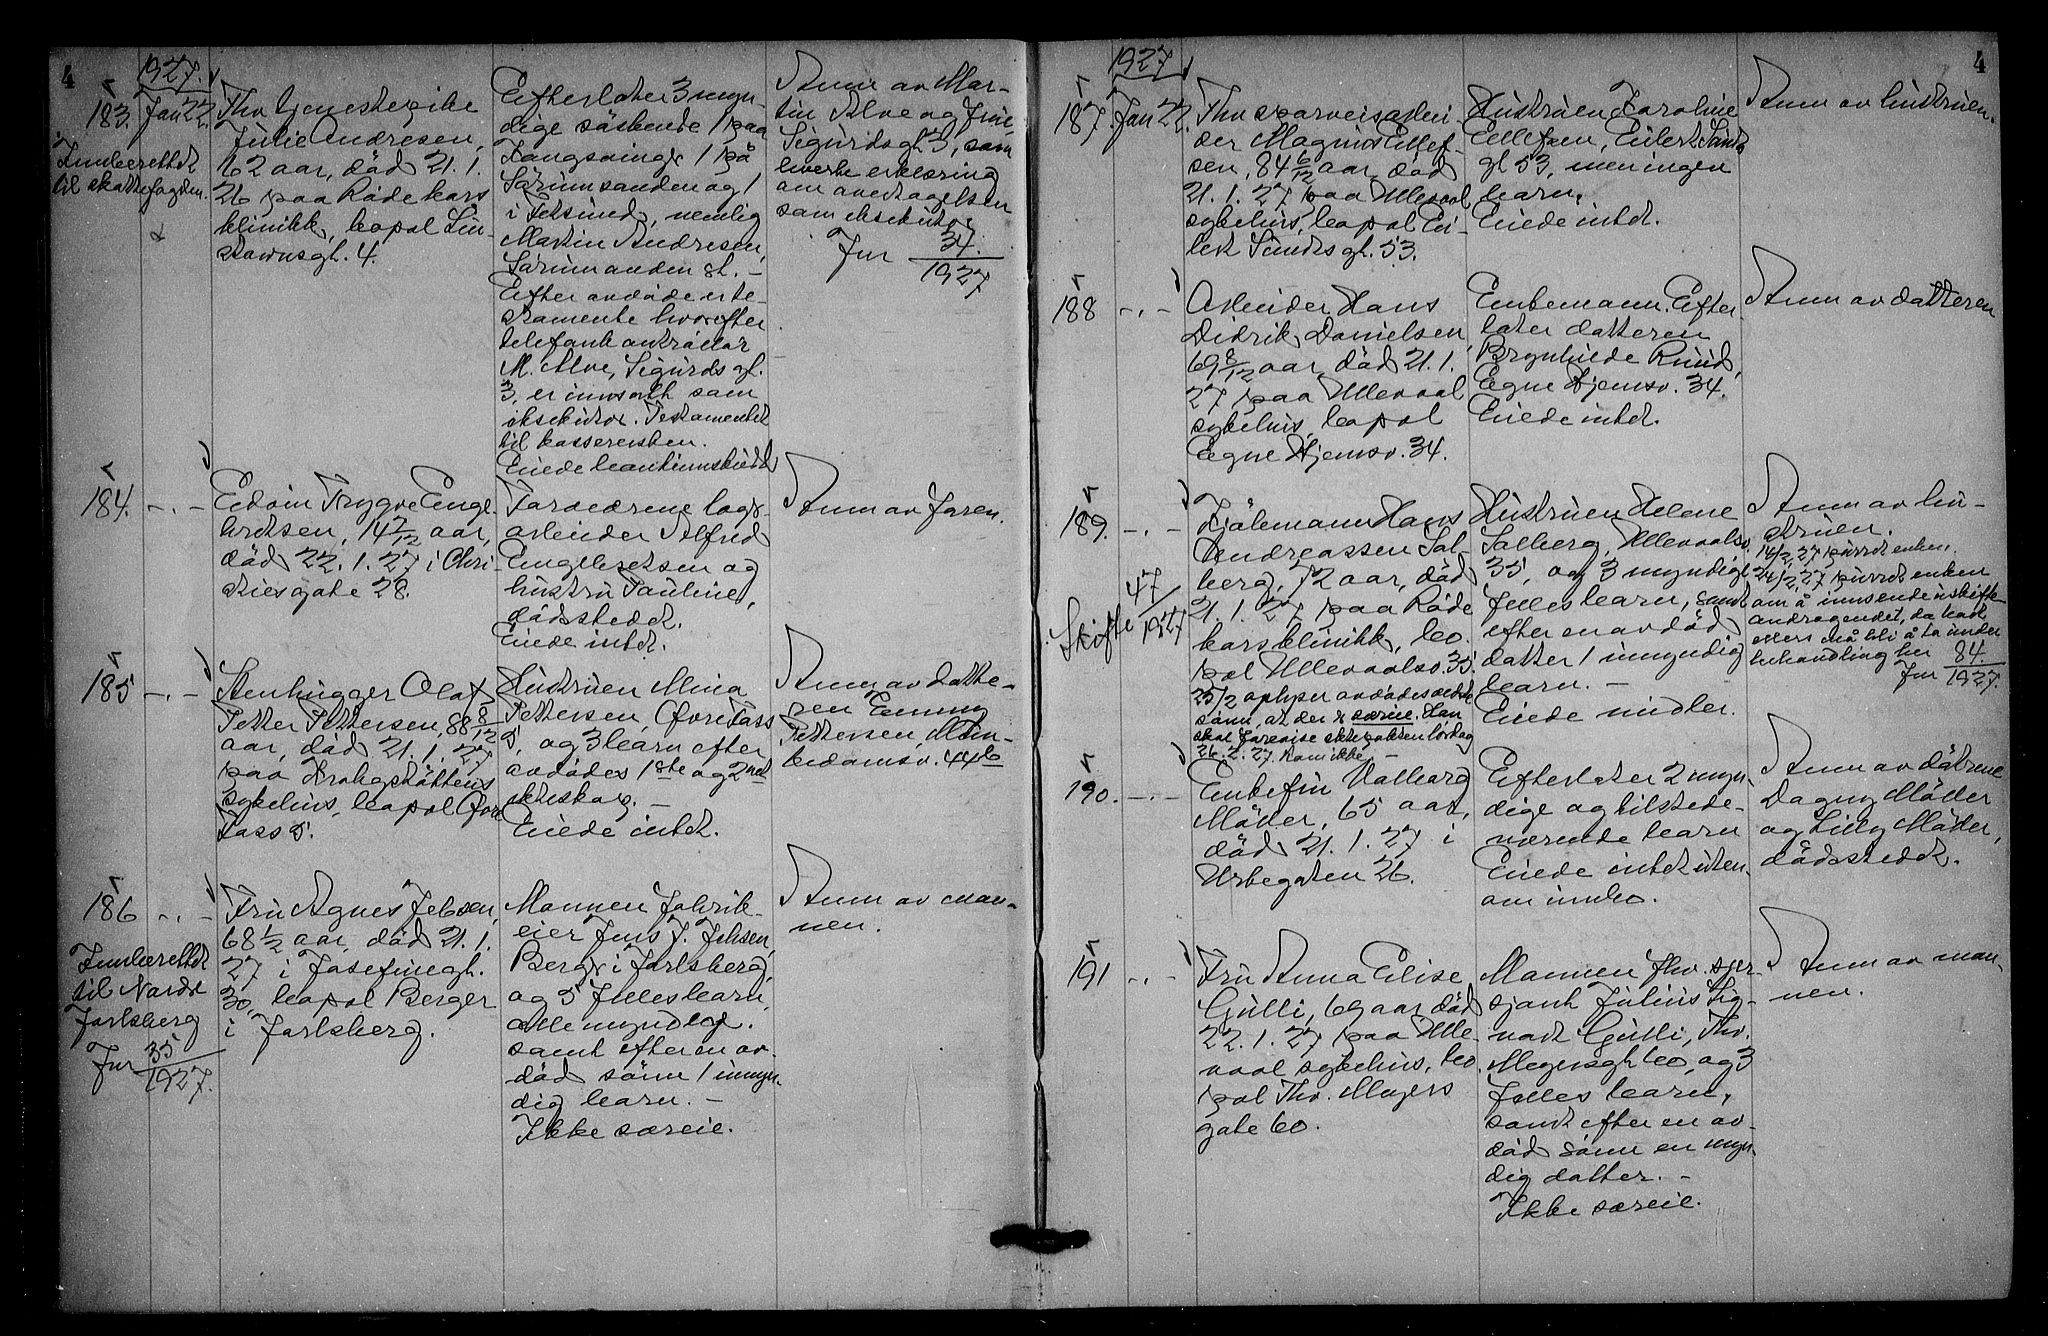 4
1927.
183. Jan 22.
Innberettet
til skattefogden.
Fhv tjenestepike
Julie Andresen,
62 aar, død 21.1.
26 paa Røde kors
klinikk, bopæl Lin-
stowsgt. 4.
Efterlater 3 myn-
dige søskende 1 paa
1 på
Sørumsanden og 1
i Fetsund, nemlig
Martin Andresen,
Sørumsanden st. -
Efter avdøde er te-
stamente hvorefter
telefonkontrollør
M. Alve, Sigurds gt.
3, er innsatt som
eksekutor. Testamentet
til kassereren.
Eiede bankinnskudd
Anm av Mar-
tin Alve og frue,
Sigurdsgt 3, som
erklæring
om mottagelsen
som eksekutor
Jnr 34.
1927
184. -.-
Edvin Trygve Enge-
bretsen, 14 7/12 aar,
død 22.1.27 i Chri-
stiesgate 28.
Forældrene lagr.
arbeider Alfred
Engebretsen og
hustru Pauline,
dødsstedet.
Eiede intet.
Anm av faren.
185 -.-
Stenhugger Olaf
Petter Pettersen, 88 8/12
aar, død 21.1.27
paa Krohgstøttens
sykehus, bopæl Øvre
Foss 5.
Hustruen Mina
Pettersen, Øvre Foss
5, og 3 barn efter
avdødes 1ste og 2net
ekteskap. -
Eiede intet.
Anm av datte-
ren Emmy
Pettersen, Mun-
kedamsv. 44b
186 -.-
Innberettet
til Nordre
Jarlsberg
Jnr 35
1927.
Fru Agnes Jebsen,
68 1/2 aar, død 21.1.
27 i Josefinegt.
30, bopæl Berger
i Jarlsberg.
Mannen fabrik-
eier Jens J. Jebsen,
Berger i Jarlsberg,
og 5 fellesbarn,
alle myndige.
samt efter en av-
død sønn 1 umyn-
dig barn. -
Ikke særeie.
Anm av man-
nen.
1927
4
187. Jan 22.
Fhv sporveisarbei-
der Magnus Ellef-
sen, 84 6/12 aar, død
21.1.27 paa Ullevaal
sykehus, bopæl Ei-
lert Sundts gt. 53.
Hustruen Karoline
Ellefsen, Eilert Sundts
gt 53, men ingen
barn.
Eiede intet.
Anm av hustruen.
188 -.-
Arbeider Hans
Didrik Danielsen,
69 8/12 aar, død 21.1.
27 paa Ullevaal
sykehus, bopæl
Egne Hjemsv. 34.
Enkemann. Efter-
later datteren
Brynhilde Ruud,
Egne Hjemsv. 34.
Eiede intet.
Anm av datteren
189. -.-
Skifte 47/1927
Kjølemann Hans
Andreassen Sal-
berg, 72 aar, død
21.1.27 paa Røde
kors klinikk, bo-
pæl Ullevaalsv. 35.
25/2 oplyser avdødes
sønn, at der er særeie. Han
skal forevise ektepakten lørdag
26.2.27. Kom ikke. -
Hustruen Helene
Salberg, Ullevaalsv.
35, og 3 myndige
fellesbarn, samt
efter en avdød
datter 1 umyndig
barn. -
Eiede midler.
Anm av hu-
struen.
14/2.27 purret enken.
24/2.27 purret enken
om å innsende skifte-
andragendet, da boet
ellers må bli å ta under
behandling her
Jnr 84.
1927.
190. -.-
Enkefru Valborg
Møller, 65 aar,
død 21.1.27 i
Urbegaten 26.
Efterlater 2 myn-
dige og tilstede-
værende barn
Eiede intet uten-
om innbo.
Anm av døtrene
Dagny Møller
og Lilly Møller,
dødsstedet.
191 -.-
Fru Anna Elise
Gulli, 69 aar, død
22.1.27 paa Ulle-
vaal sykehus, bo-
pæl Thv. Meyers
gate 60.
Mannen fhv. ser-
sjant Julius Sig-
vart Gulli, Thv.
Meyersgt 60, og 3
felles barn,
samt efter en av-
død sønn en myn-
dig datter. -
Ikke særeie.
Anm av man-
nen.